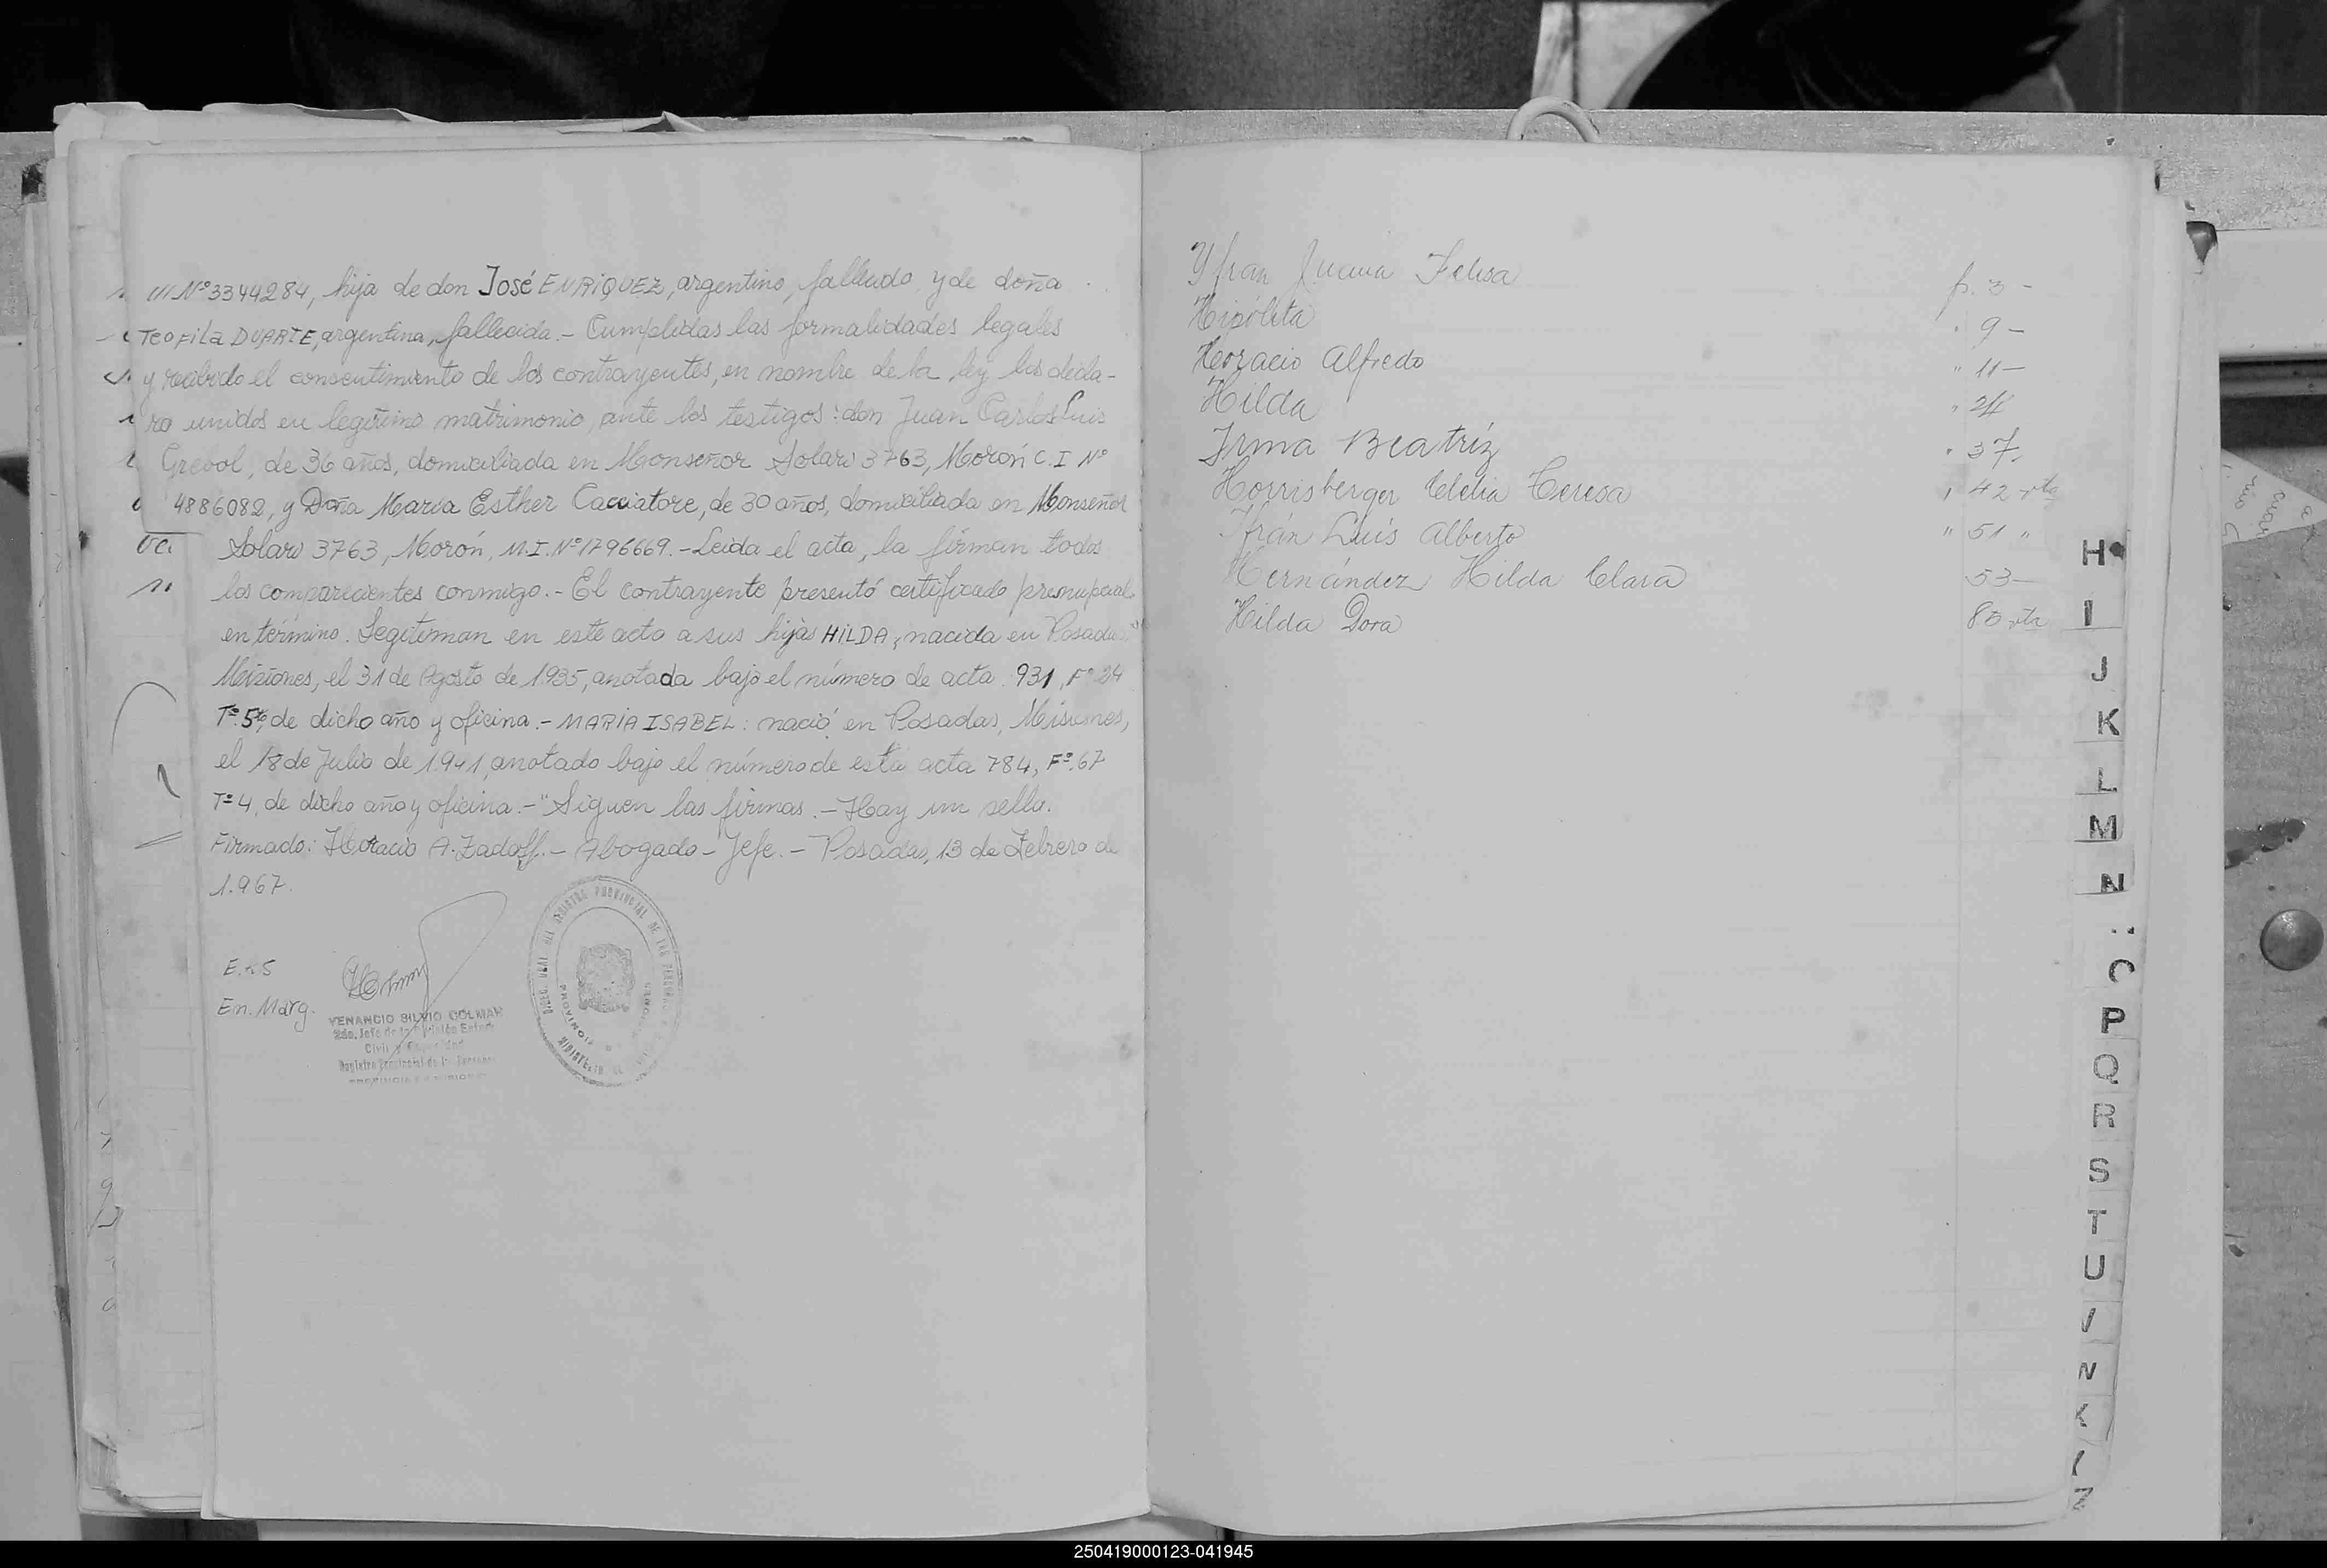 /// Nº 3344284, hija de don José ENRIQUEZ, argentino, fallecido, y de doña
TEOFILA DUARTE, argentina, fallecida.- Cumplidas las formalidades legales
y recibido el consentimiento de los contrayentes, en nombre de la ley los decla-
ro unidos en legítimo matrimonio, ante los testigos: don Juan Carlos Luis
Grebol, de 36 años, domiciliada en Monseñor Solari 3763, Morón C.I Nº
4886082, y Doña María Esther Cacciatore, de 30 años, domiciliada en Monseñor
Solari 3763, Morón, M.I. Nº 1796669.- Leida el acta, la firman todos
los comparecientes conmigo.- El contrayente presentó certificado prenupcial
en término. Legitiman en este acto a sus hijas HILDA, nacida en Posadas,
Misiones, el 31 de Agosto de 1.935, anotada bajo el número de acta 931, Fº 24
Tº 5º, de dicho año y oficina.- MARIA ISABEL: nació en Posadas, Misiones,
el 18 de Julio de 1.941, anotado bajo el número de esta acta 784, Fº. 67
Tº 4, de dicho año y oficina.- "Siguen las firmas.- Hay un sello.
Firmado: Horacio A. Zadoff.- Abogado - Jefe.- Posadas, 13 de Febrero de
1.967.
En. Marg.
VENANCIO SILVIO COLMAN
2do. Jefe de la División Estado
Civil y Capacidad
Registro Provincial de las Personas
Yfran Juana Felisa f. 3 -
Hipólita " 9 -
Horacio Alfredo " 11 -
Hilda " 24
Irma Beatríz " 37.
Horrisberger Clelia Teresa " 42 vta
Ifrán Luís Alberto " 51 "
Hernández Hilda Clara 53 -
Hilda Dora 85 vta
H
I
J
K
L
M
N
O
P
Q
R
S
T
U
Z
250419000123-041945